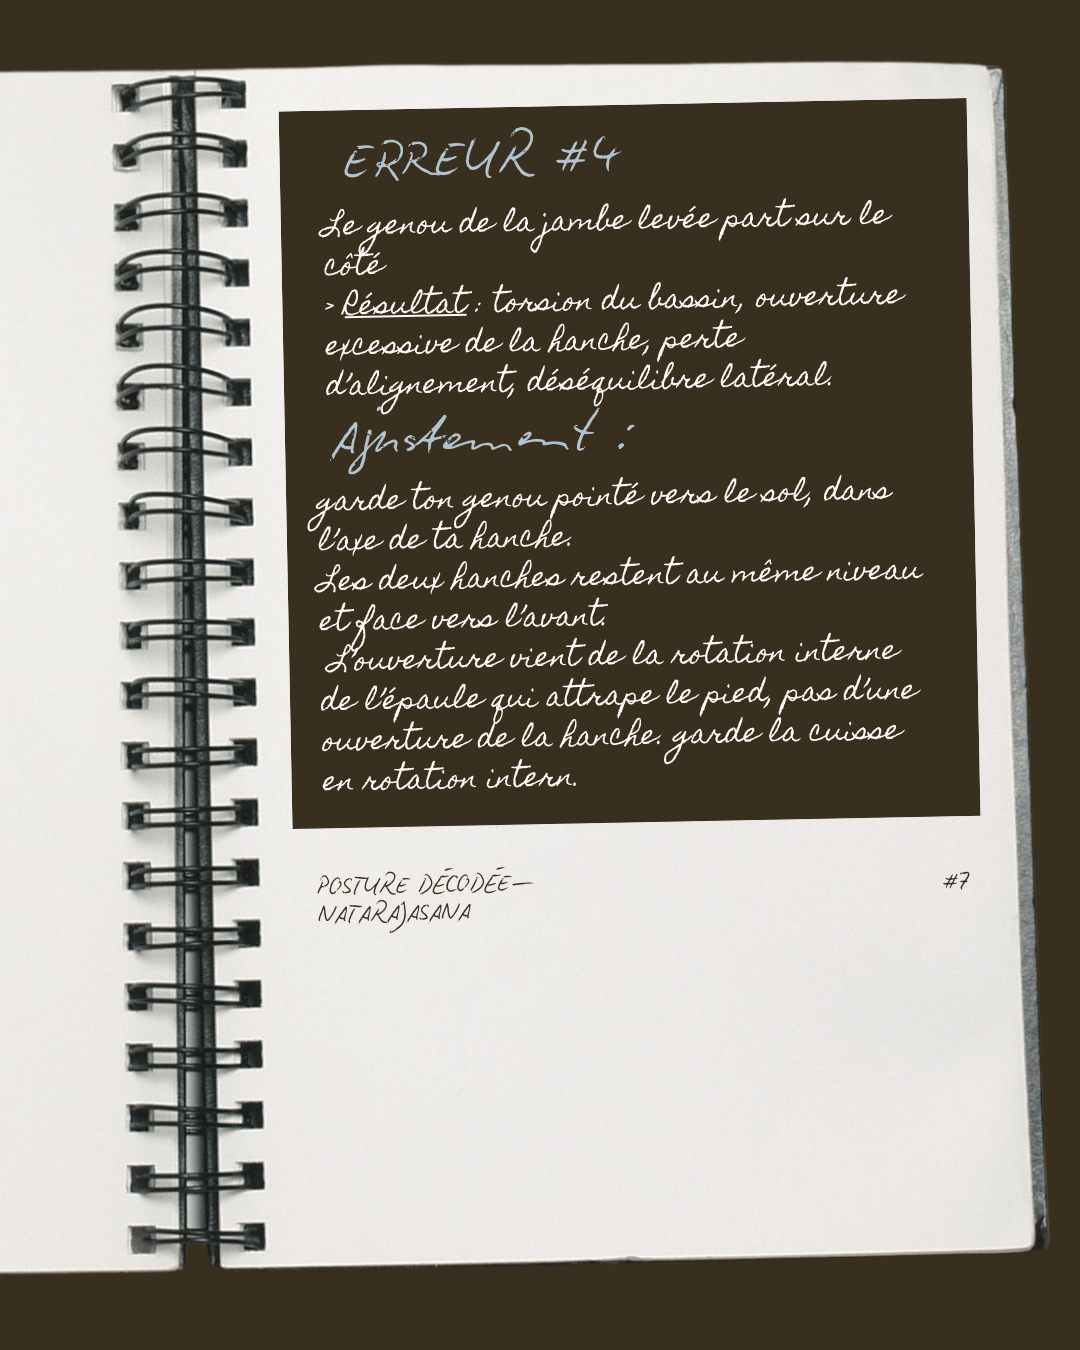 ERREUR #4
Le genou de la jambe levée part sur le
côté
> Résultat : torsion du bassin, ouverture
excessive de la hanche, perte
d'alignement, déséquilibre latéral.
Ajustement :
garde ton genou pointé vers le sol, dans
l'axe de ta hanche.
Les deux hanches restent au même niveau
et face vers l'avant.
L'ouverture vient de la rotation interne
de l'épaule qui attrape le pied, pas d'une
ouverture de la hanche. garde la cuisse
en rotation intern.
POSTURE DÉCODÉE—
NATARAJASANA
#7